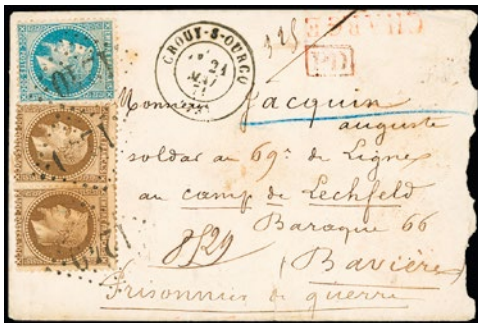 CROUY-S-OURCQ
21
MAI
71
CHARGÉ
325
PD
Monsieur Jacquin
auguste
soldat au 69e de Ligne
au camp de Lechfeld
Baraque 66
(Bavière)
Prisonnier de guerre